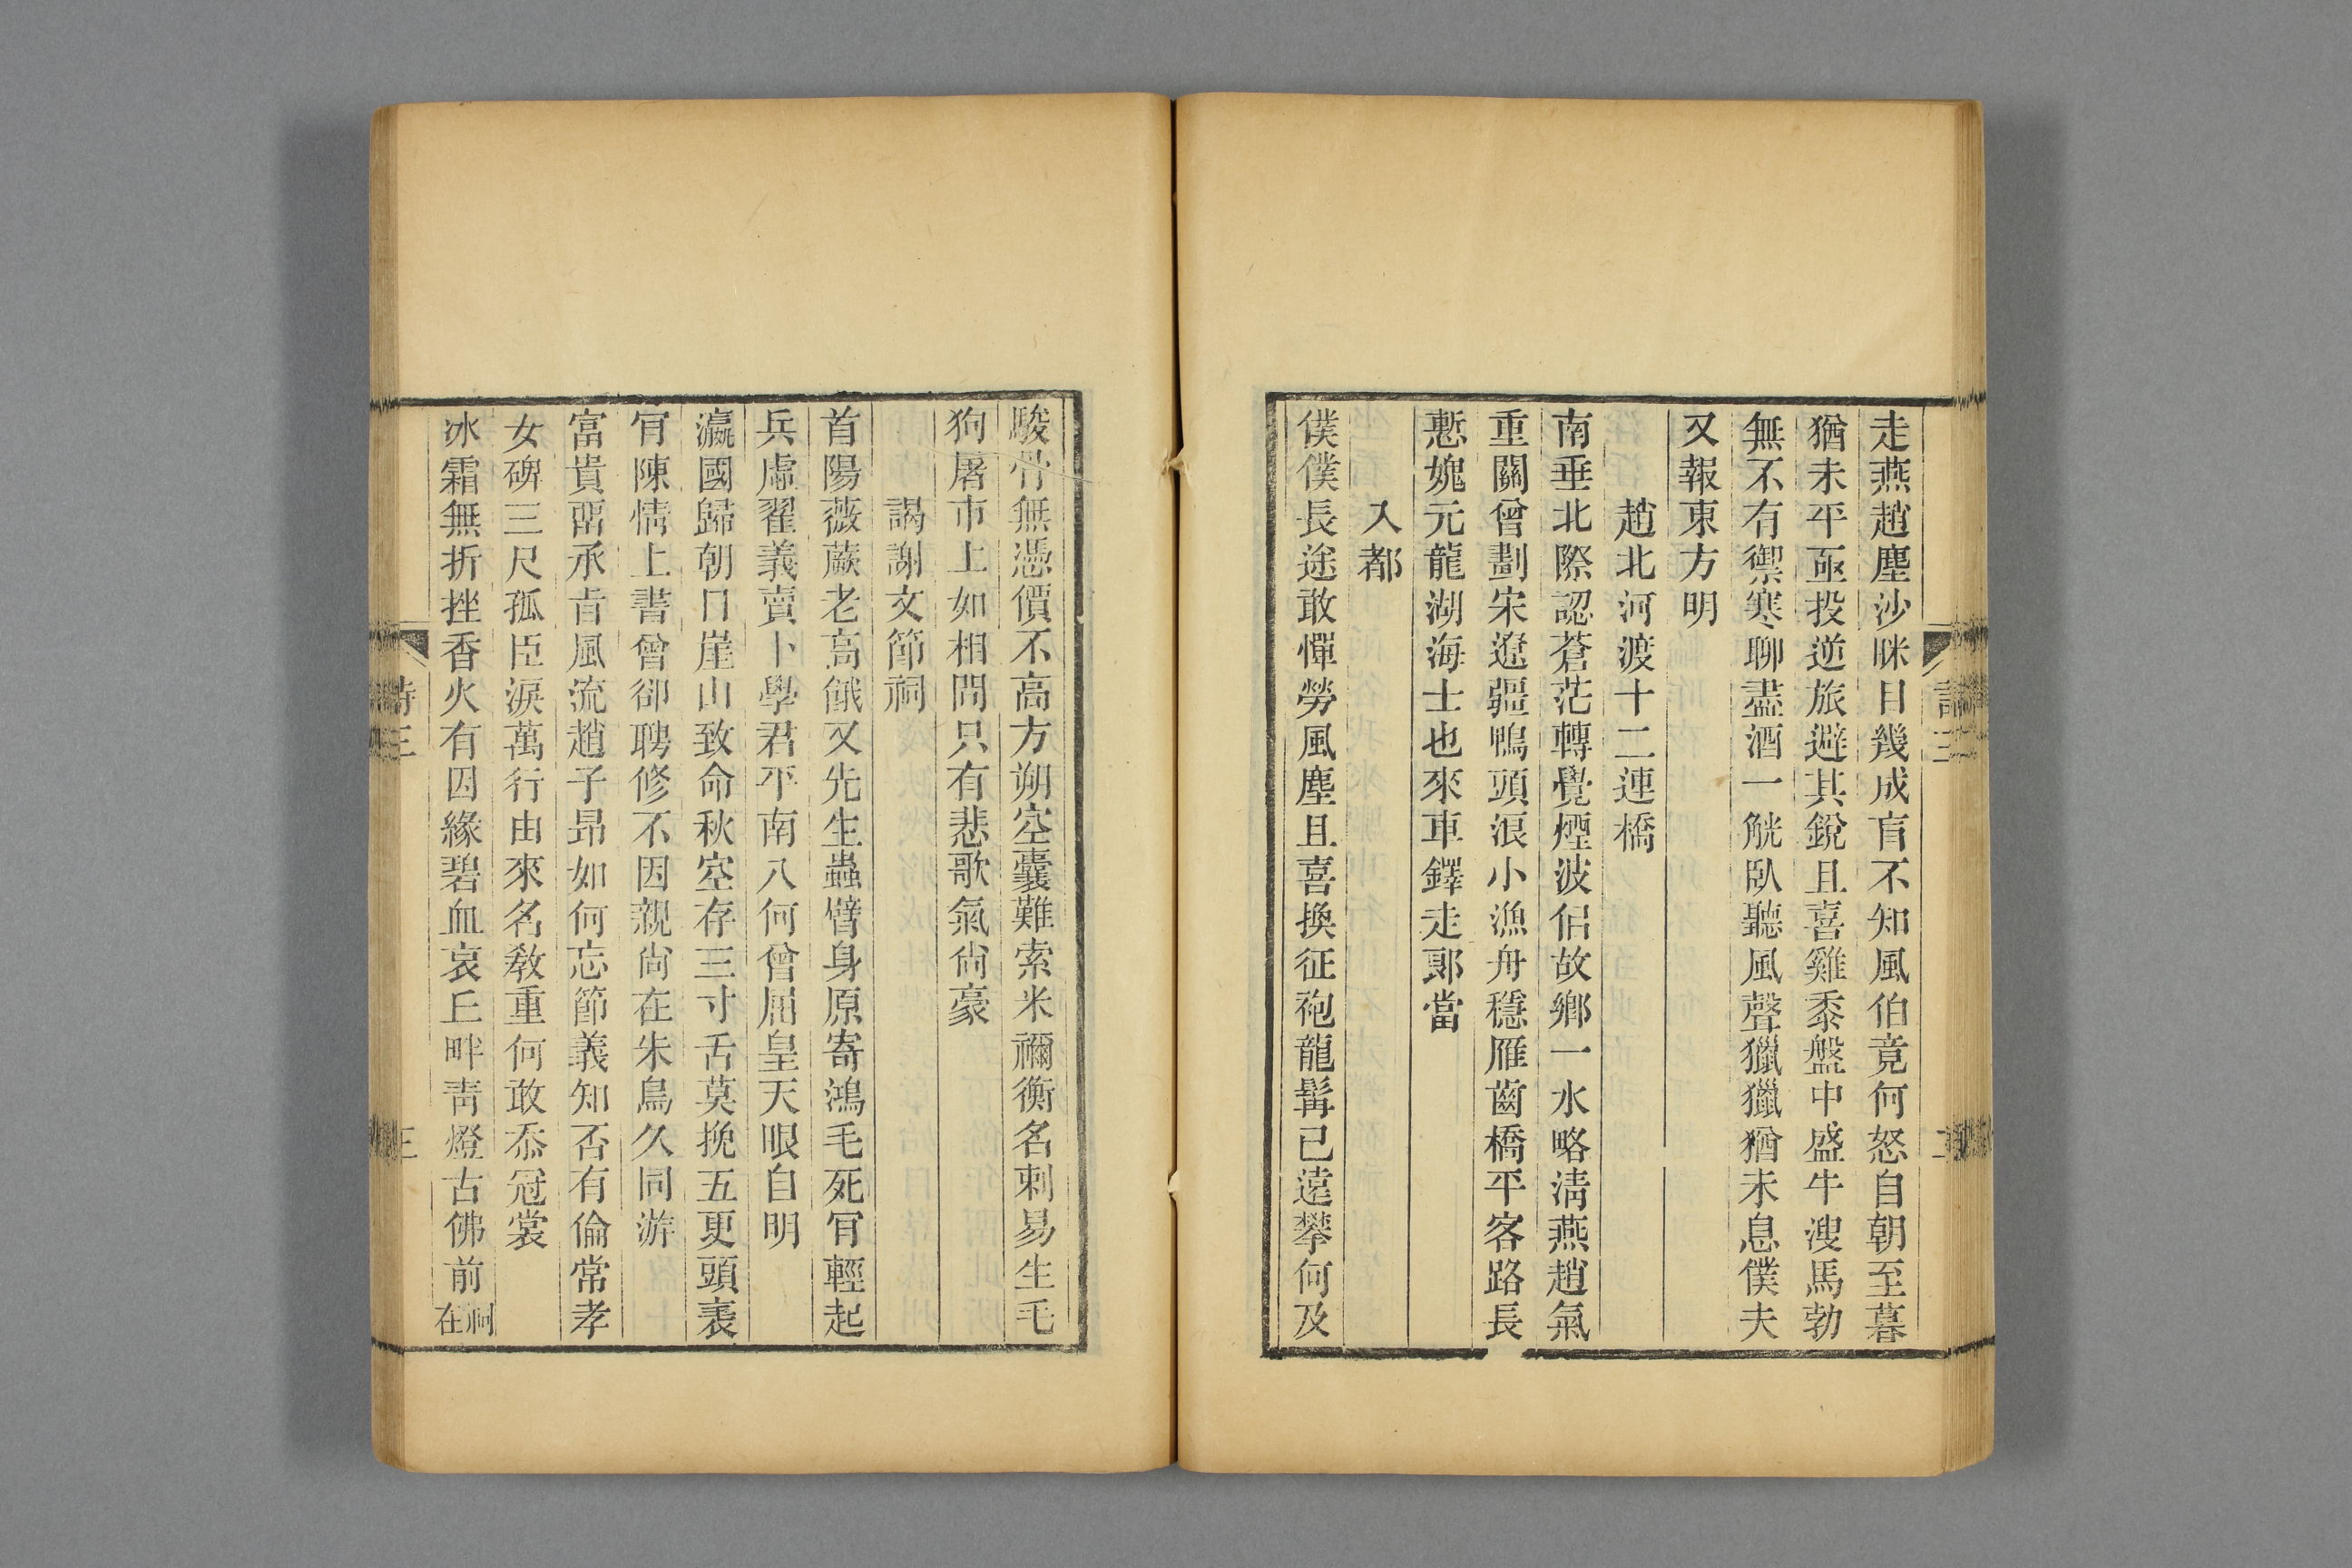 走燕趙塵沙眯目幾成盲不知風伯竟何怒自朝至暮
猶未平亟投逆旅避其銳且喜雞黍盤中盛牛溲馬勃
無不有禦寒聊盡酒一觥臥聽風聲獵獵猶未息僕夫
又報東方明
趙北河渡十二連橋
南垂北際認蒼茫轉覺煙波侶故鄉一水略淸燕趙氣
重關曾劃宋遼疆鴨頭浪小漁舟穩雁齒橋平客路長
慙媿元龍湖海士也來車鐸走郞當
入都
僕僕長途敢憚勞風塵且喜換征袍龍髯已遠攀何及
駿骨無憑價不高方朔空囊難索米禰衡名刺易生毛
狗屠市上如相問只有悲歌氣尙豪
謁謝文節祠
首陽薇蕨老高餓又先生蟲臂身原寄鴻毛死肎輕起
兵虛翟義賣卜學君平南八何曾屈皇天眼自明
瀛國歸朝日崖山致命秋空存三寸舌莫挽五更頭表
肎陳情上書曾卻聘修不因親尙在朱鳥久同游
富貴甯承旨風流趙子昻如何忘節義知否有倫常孝
女碑三尺孤臣淚萬行由來名敎重何敢忝冠裳
冰霜無折挫香火有因緣碧血哀丘畔靑燈古佛前祠在
詩三
三